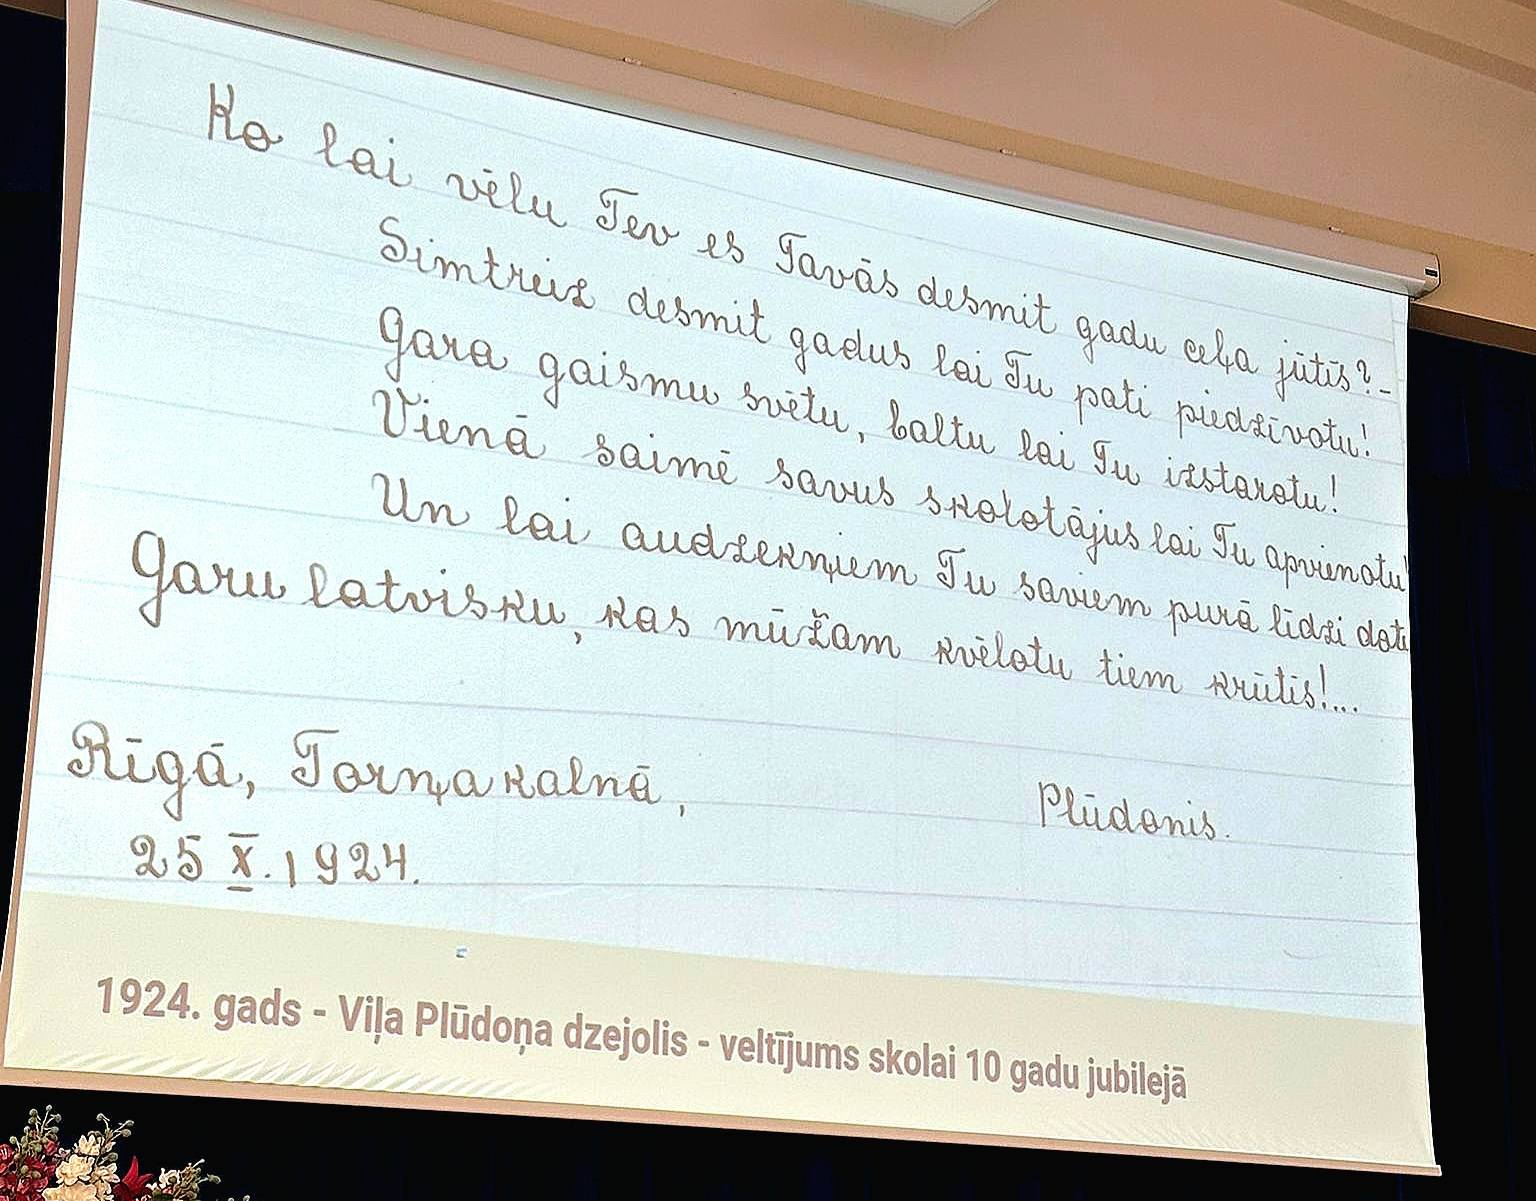 Ko lai vēlu Tev es Tavās desmit gadu ceļa jūtīs? -
Simtreiz desmit gadus lai Tu pati piedzīvotu!
Gara gaismu svētu, baltu lai Tu izstarotu!
Vienā saimē savus skolotājus lai Tu apvienotu!
Un lai audzēkņiem Tu saviem pūrā līdzi dotu
Garu latvisku, kas mūžam kvēlotu tiem krūtīs!...
Rīgā, Torņakalnā,
Plūdonis.
25 X. 1924.
1924. gads - Viļa Plūdoņa dzejolis - veltījums skolai 10 gadu jubilejā